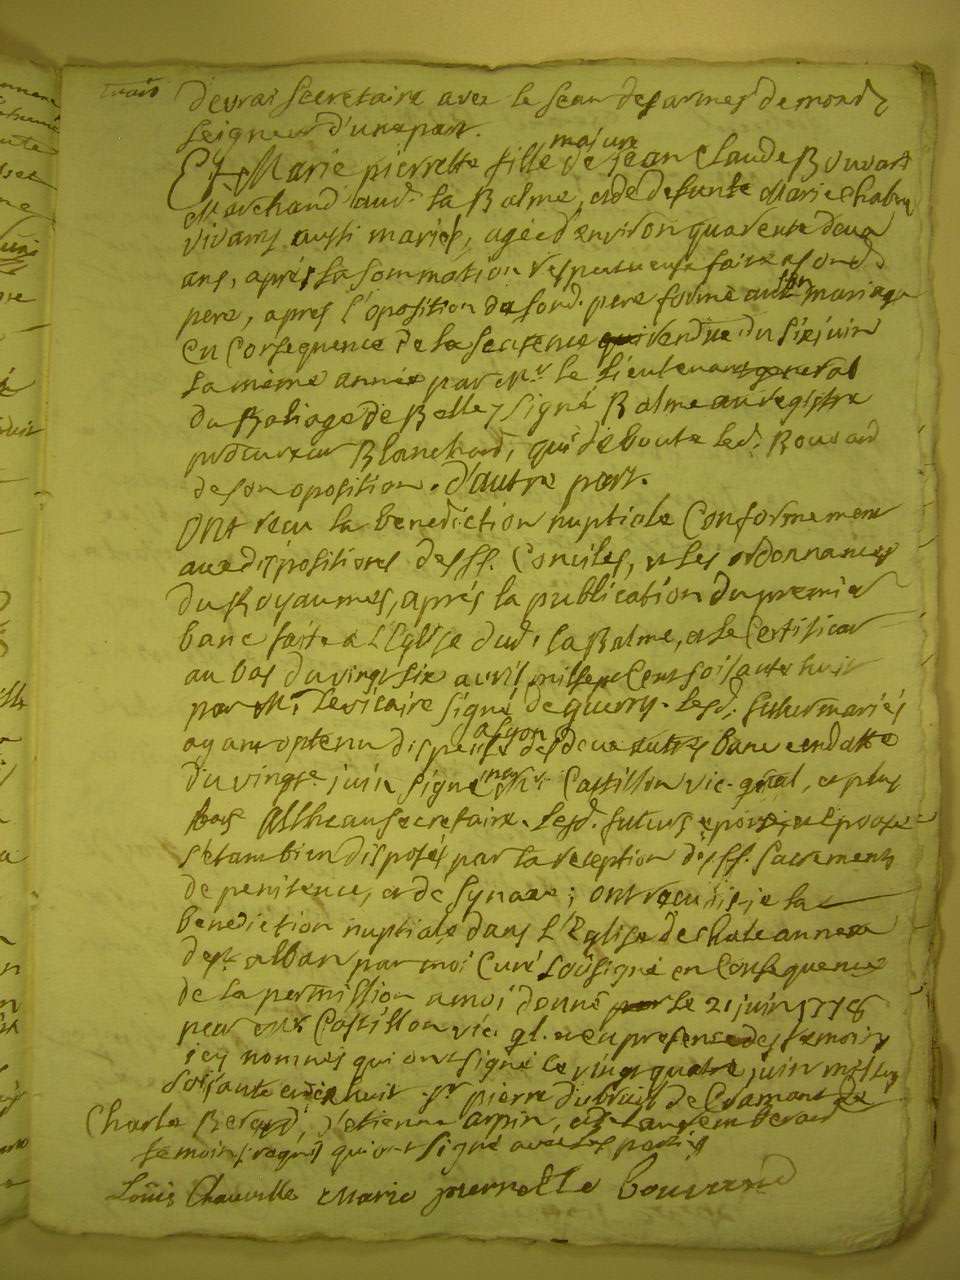 devrai secretaire avec le sceau des armes de mond.
seigneur d'une part.
majure
Et Marie pierrette fille de jean Claude Bouvard
Marchand aud. la Balme, et de defunte Marie
vivans aussi mariés, agée d'environ quarente deux
ans, aprés la sommation respectueuse faite a sond.
pere, apres l'oposition du sond. pere formé au mariage
en Consequence de la sentence rendue du six juin
la même année par Mr le Lieutenant general
du Baliage de Belley signé Balme au régistre
procureur Blanchard, qui déboute led. Bouvard
de son oposition. d'autre part.
ONt reçu la benediction nuptiale Conformement
aux dispositions des SS. Conciles, et les ordonnances
du Royaumes, aprés la publication du premier
banc faite a L'Eglise dud. la Balme, et le Certificat
au bas du vingt six avril mille sept Cent soisante huit
par Mr le vicaire signé deguerry. lesd. futurs mariés
a Lyon
ayant optenu dispense des deux autres banc en datte
du vingt juin signé Castillon vic. gñal, et plus
bas secretaire. Lesd. futurs epoux, et Epouse
s'etant bien disposés par la reception des SS. Sacrements
de penitence, et de Synaxe; ont reçu la
benediction nuptiale dans L'Eglise de
de st alban par moi Curé soussigné en Consequence
de la permission a moi donné le 21 juin
par Mr Castillon vic. gl. en presence des temoins
icy nommés qui ont signé le vingt quatre juin
soisante et huit sr pierre de Cramant
Charle Berard, d'etienne arpin,
temoins requis qui ont signé avec les parties
Loüis Chauville Marie pierrette bouvard